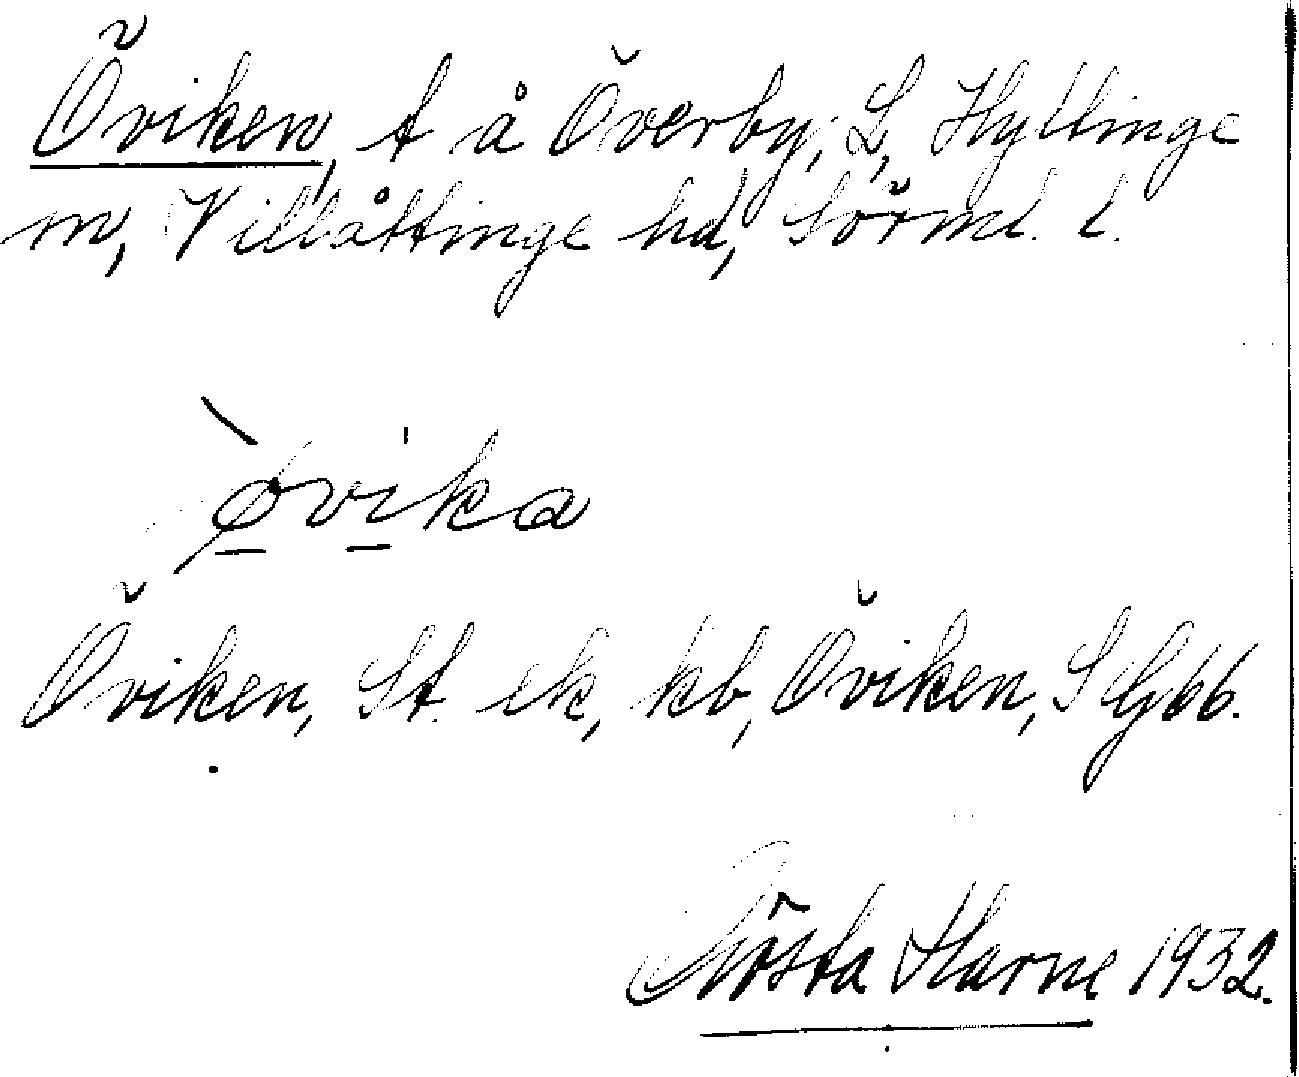 Öviken, t å Överby, L. Hyltinge
sn, Villåttinge hd, Sörml. l.
`øvika
Öviken, St. ek, kb, Öviken, SGbb.
Gösta Harne 1932.